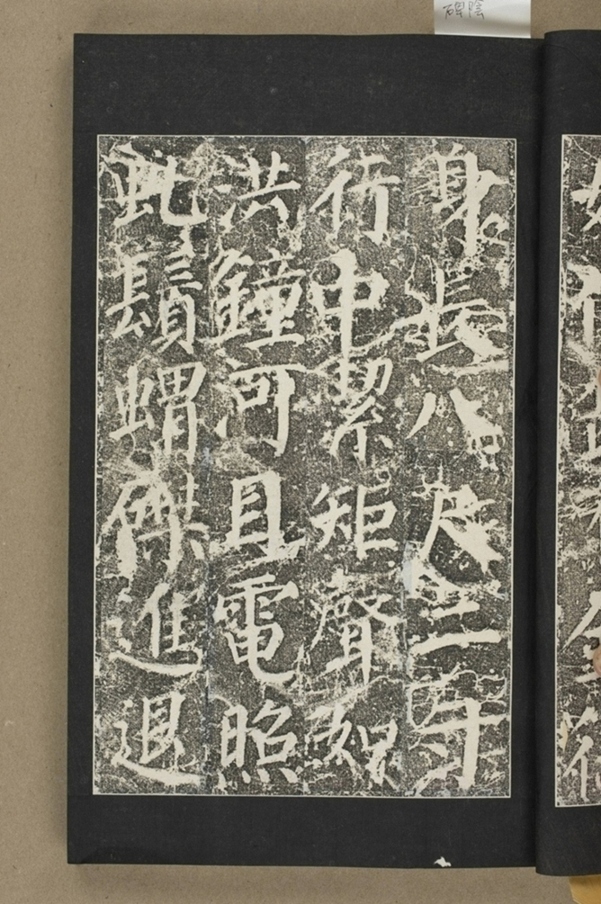 身長八尺三寸
行中絜矩聲如
洪鐘河目電照
虬鬚蝟磔進退